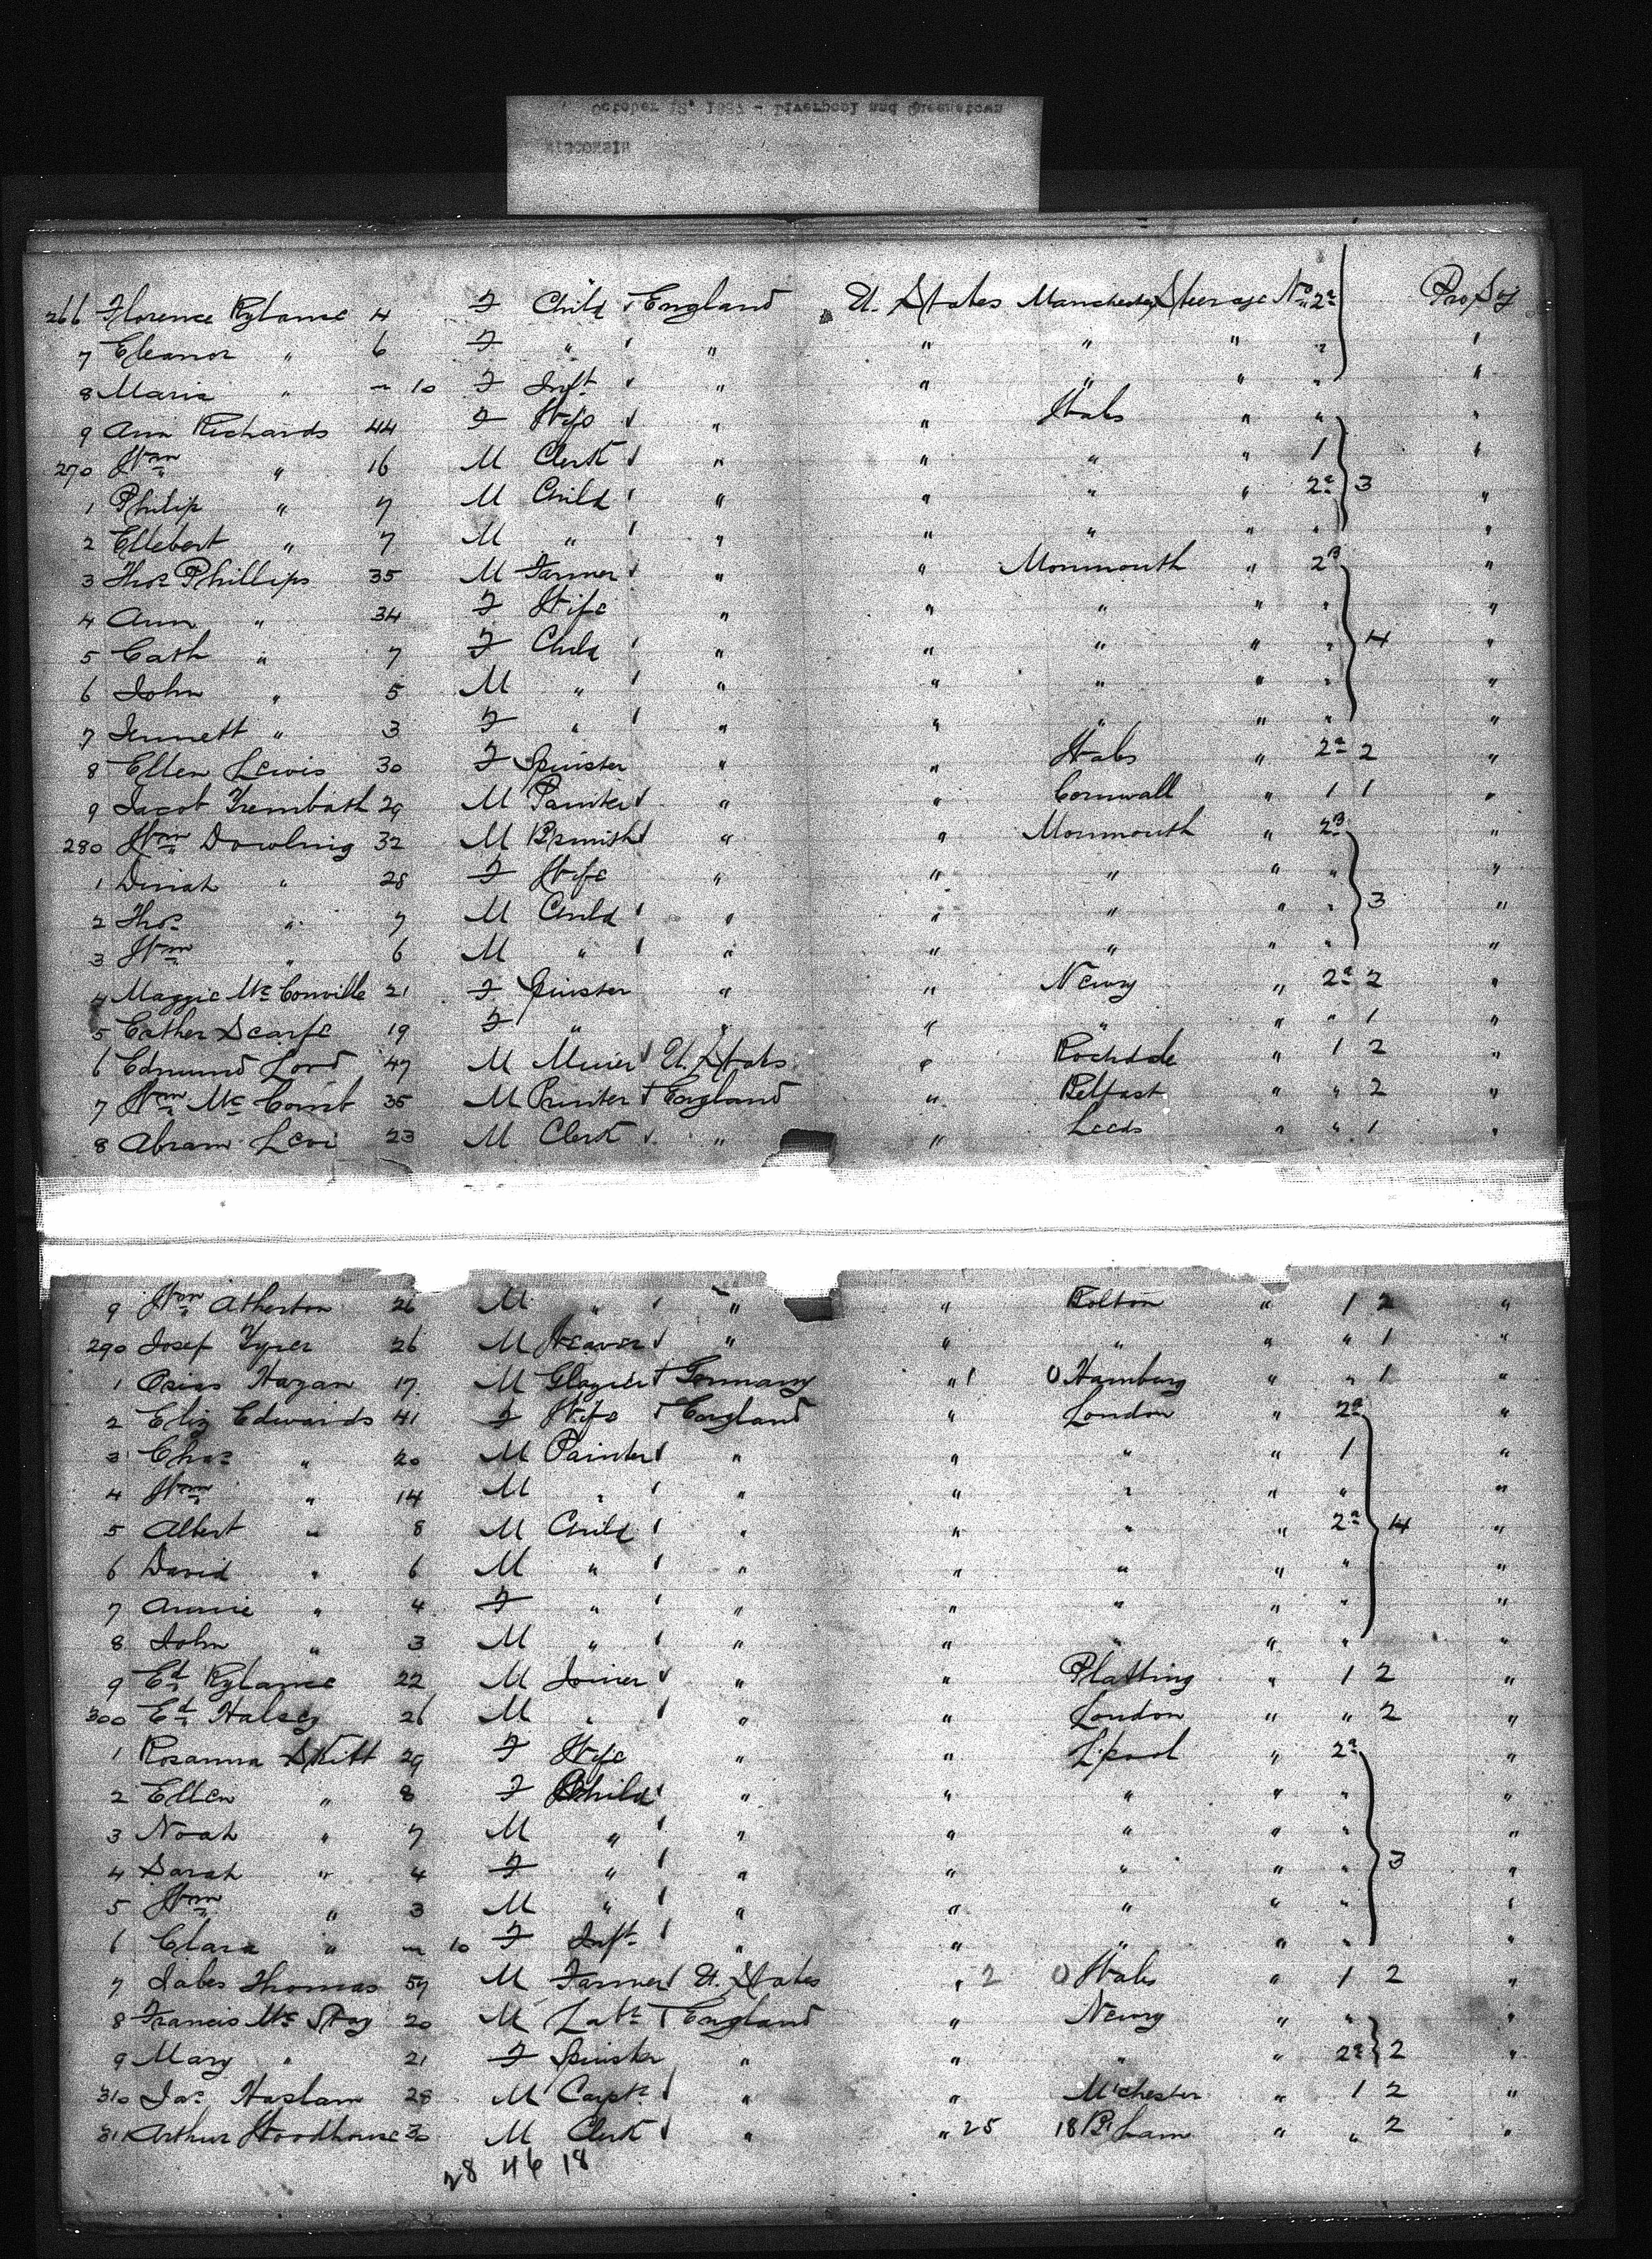 October 12, 1887 - Liverpool and Queenstown
WISCONSIN
266 Florence Rylance 4 F Child England U. States Manchester Steerage No 2a Pro Sy
7 Eleanor " 6 F " " " " " " "
8 Maria " 10 F Inft " " " " " "
9 Ann Richards 44 F Wife " " Wales " " "
270 Wm " 16 M Clerk " " " " 1 "
1 Philip " 7 M Child " " " " 2a 3 "
2 Ellebert " 7 M " " " " " " "
3 Thos Phillips 35 M Farmer " " Monmouth " 2B "
4 Ann " 34 F Wife " " " " " "
5 Cath " 7 F Child " " " " " 4 "
6 John " 5 M " " " " " " "
7 Jennett " 3 F " " " " " " "
8 Ellen Lewis 30 F Spinster " " Wales " 2a 2 "
9 Jacob Trembath 29 M Painter " " Cornwall " 1 1 "
280 Wm Dowling 32 M " " Monmouth " 2B "
1 Dinah " 28 F Wife " " " " " "
2 Thos " 7 M Child " " " " " 3 "
3 Wm " 6 M " " " " " " "
4 Maggie McConville 21 F Spinster " " Newry " 2a 2 "
5 Esther Scarfe 19 F " " " " " " 1 "
6 Edmund Lord 47 M Miner U. States " Rochdale " 1 2 "
7 Wm McComb 35 M Printer England " Belfast " " 2 "
8 Abram Levi 23 M Clerk " " Leeds " " 1 "
9 Wm Atherton 26 M " " " Bolton " 1 2 "
290 Josef Tyrer 26 M Weaver " " " " " 1 "
1 Osias Hazan 17 M Glazier Germany " 1 0 Hamburg " " 1 "
2 Eliz Edwards 41 F Wife England " London " 2a "
3 Chas " 20 M Painter " " " " 1 "
4 Wm " 14 M " " " " " " "
5 Albert " 8 M Child " " " " 2a 4 "
6 David " 6 M " " " " " " "
7 Annie " 4 F " " " " " " "
8 John " 3 M " " " " " " "
9 Ed Rylance 22 M Joiner " " Platting " 1 2 "
300 Ed Halsey 26 M " " " London " " 2 "
1 Rosanna Skitt 29 F Wife " " L'pool " 2a "
2 Ellen " 8 F Child " " " " " "
3 Noah " 7 M " " " " " " "
4 Sarah " 4 F " " " " " " 3 "
5 Wm " 3 M " " " " " " "
6 Clara " 10 F Inft " " " " " "
7 Jabes Thomas 57 M Farmer U. States " 2 0 Wales " 1 2 "
8 Francis McStay 20 M Labr England " Newry " " "
9 Mary " 21 F Spinster " " " " 2a 2 "
310 Jas Haslam 28 M Carpt " " M'chester " 1 2 "
311 Arthur Woodhouse 30 M Clerk " " 25 18 B'ham " " 2 "
28 46 18